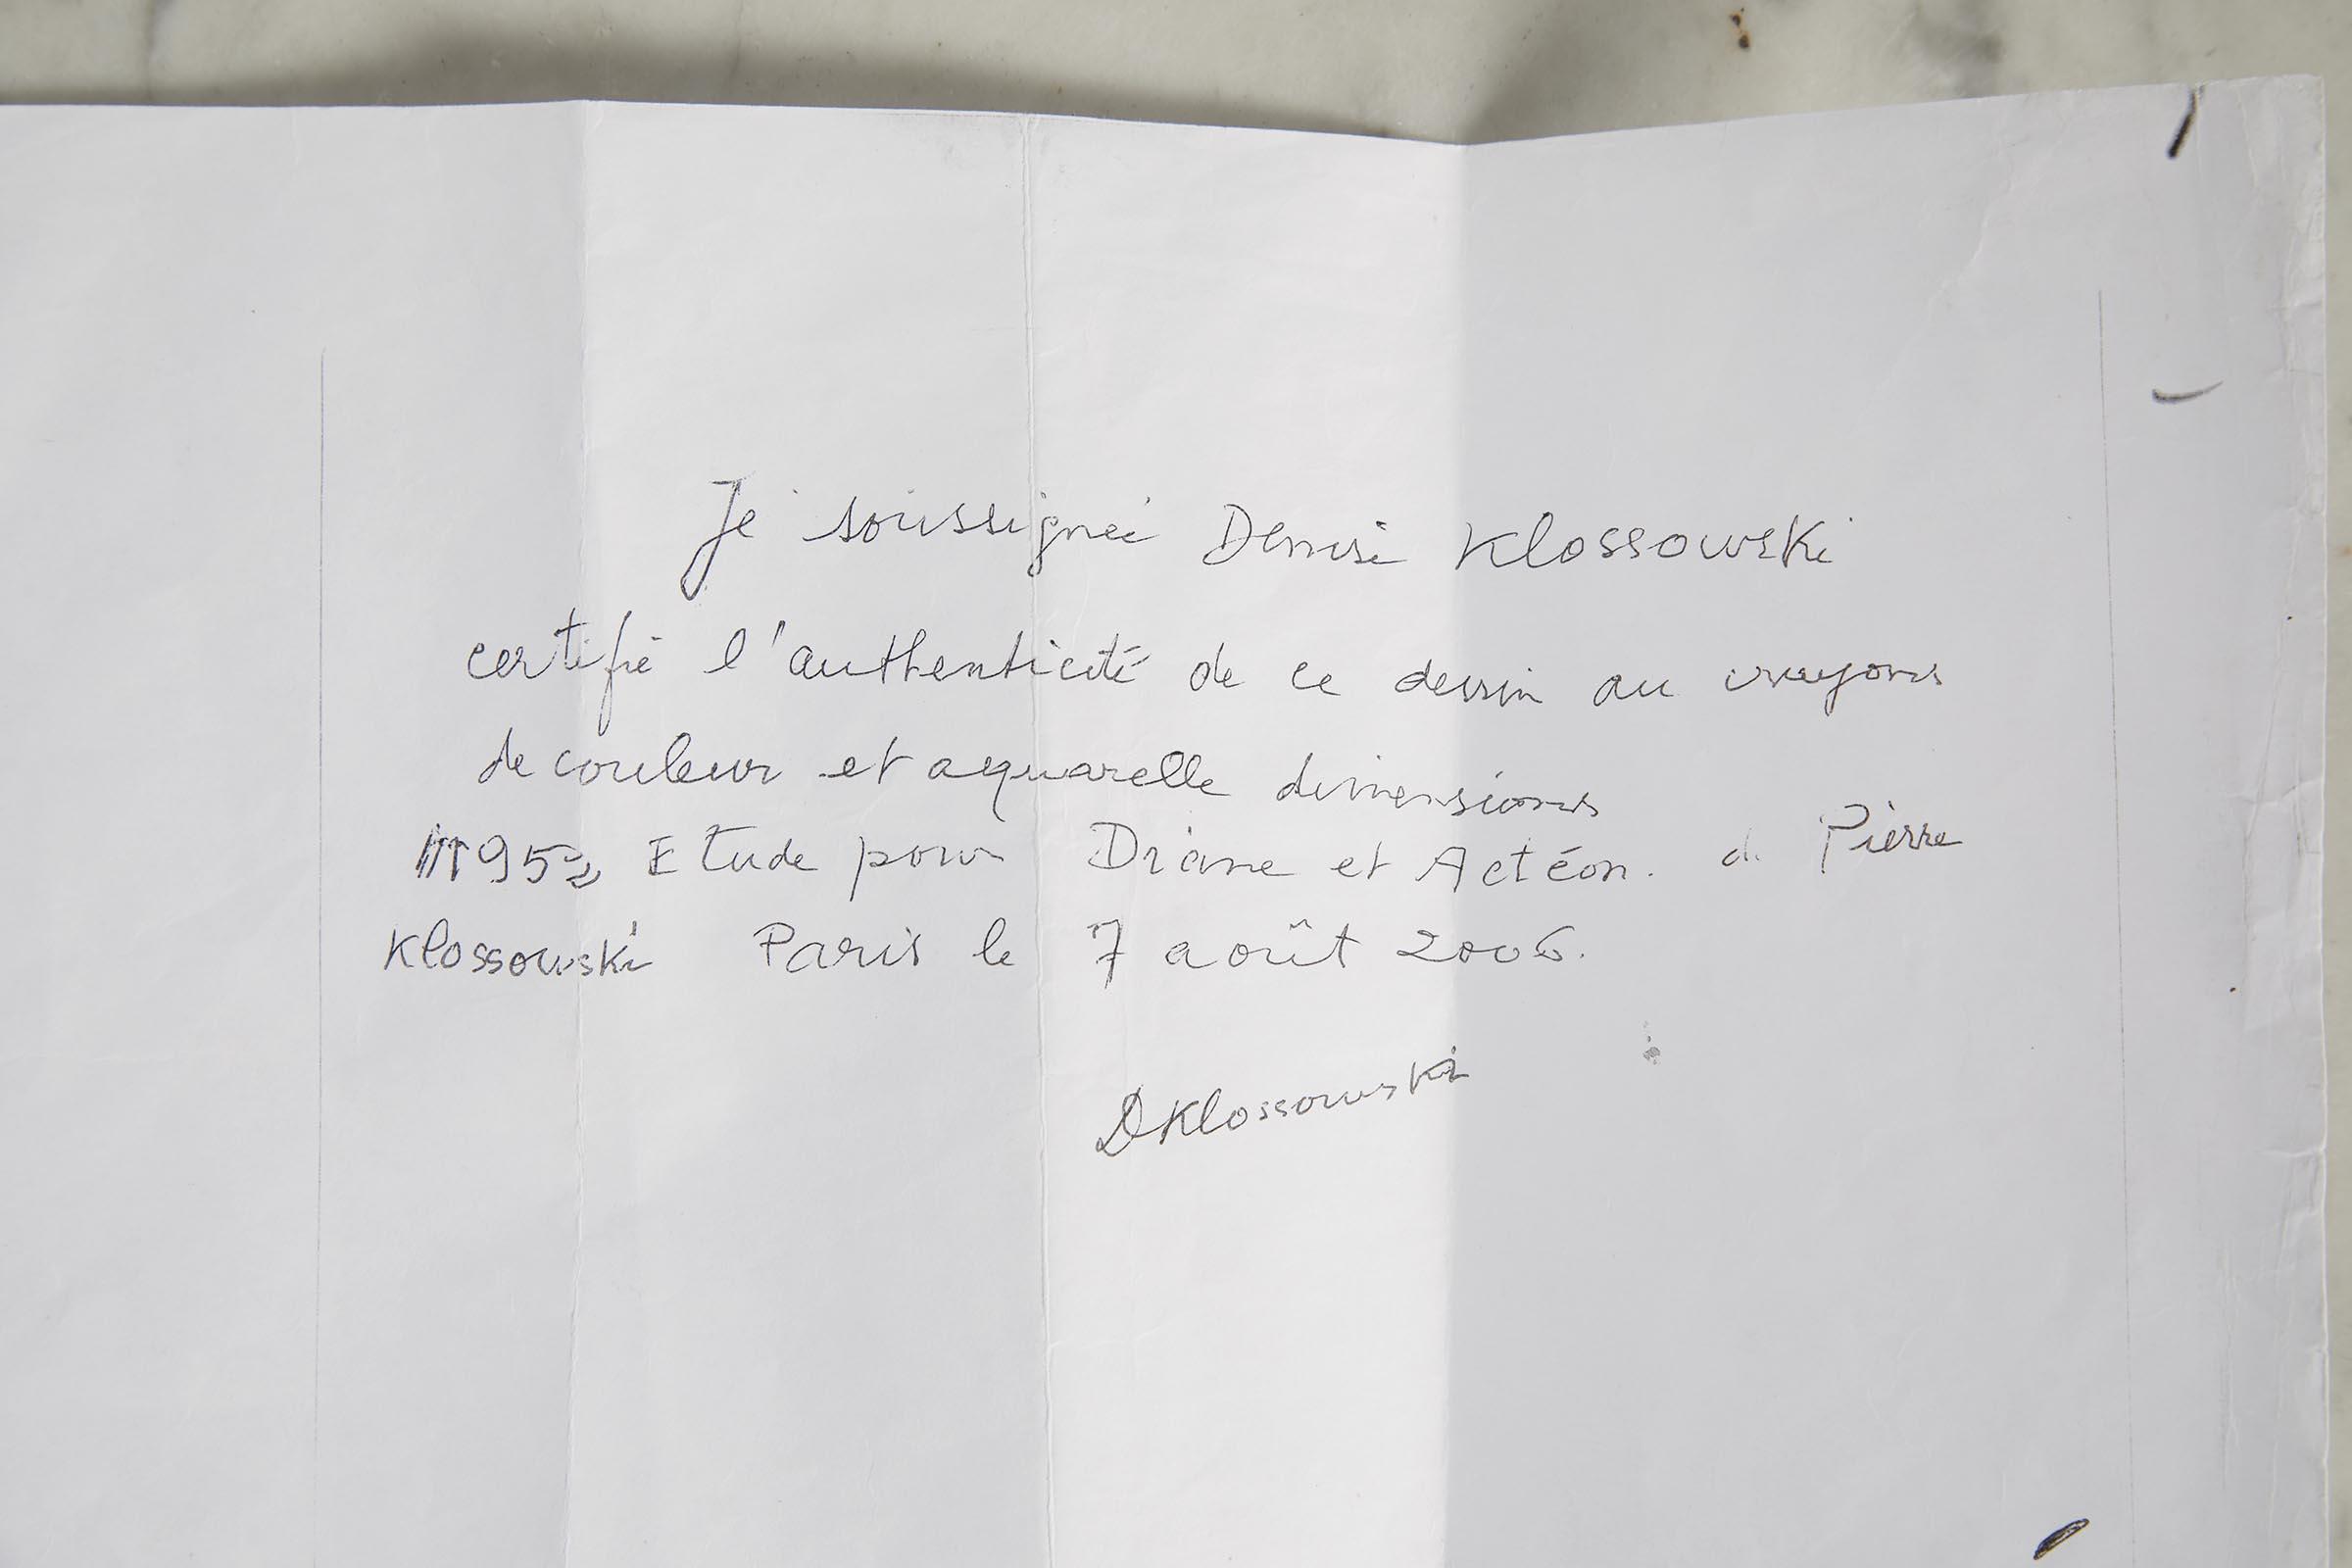 Je soussignée Denise Klossowski
certifie l'authenticité de ce dessin au crayons
de couleur et aquarelle dimensions
Etude pour Diane et Actéon. de Pierre
Klossowski Paris le 7 août 2006.
DKlossowski